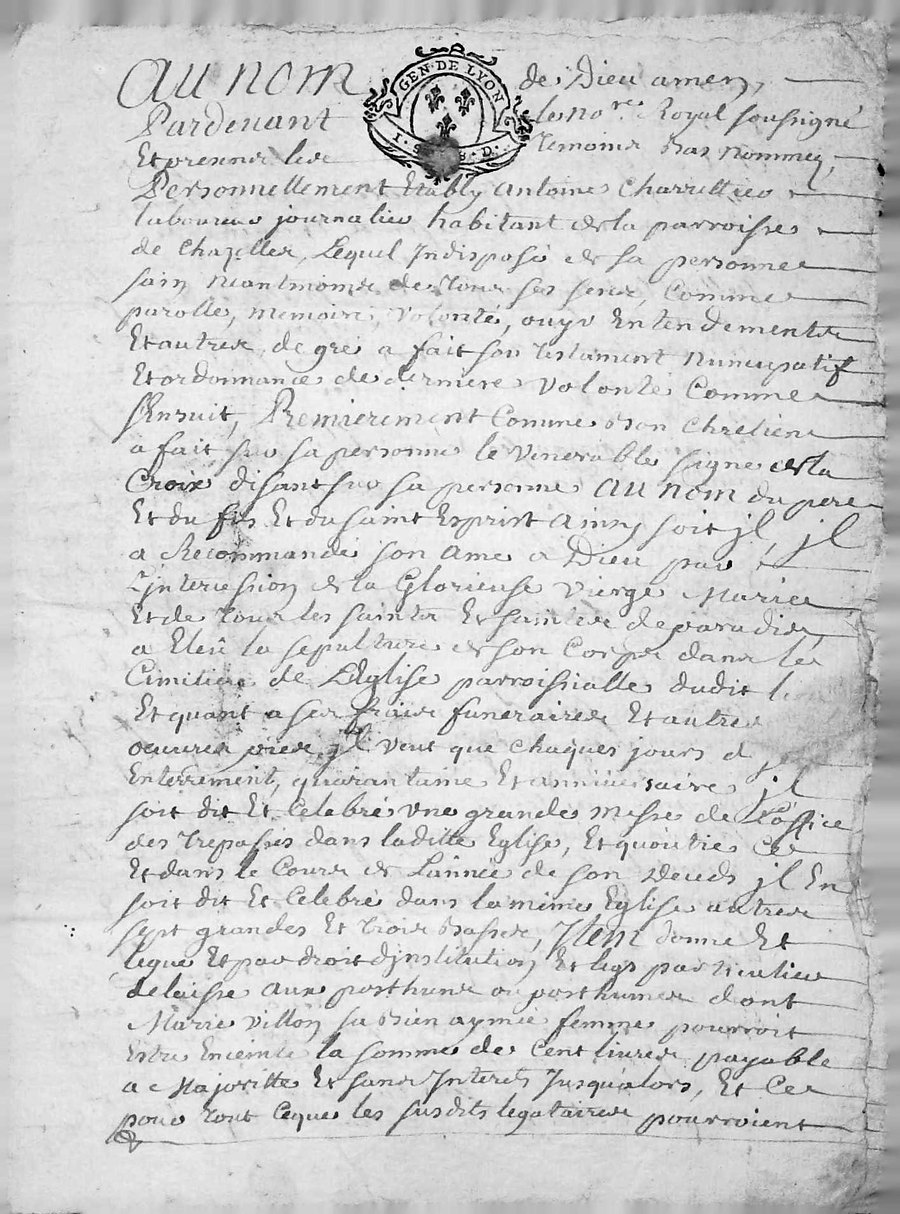 au nom de Dieu amen,
GEN. DE LYON
Pardevant le no.re Royal soussigné
Et presens les temoins bas nommez,
Personnellement Etably antoine Charretier
laboureur journalier habitant de la parroisse
de Chazelles, Lequel Indisposé de sa personne
sain neantmoins de tous ses sens, comme
parolle, memoire, volonté, ouye Entendements
Et autres, de gré a fait son testament nuncupatif
Et ordonnance de derniere volonté comme
s'Ensuit, Premierement Comme bon Chretien
a fait sur sa personne le venerable signe de la
Croix disant sur sa personne au nom du pere
Et du fis Et du saint Esprist ainsy soit jl, jl
a Recommandé son ame a Dieu par
L'jntercession de la Glorieuse vierge Marie
Et de tous les saints Et saintes de paradis,
a Eleu la sepulture de son Corps dans le
Cimitiere de L'Eglise parroissialle dudit
Et quant a ses frais funeraires Et autres
oeuvres pies jl veut que chaques jours d
Enterrement, quarantaine Et anniversaire jl
soit dit Et Celebré une grande messe de L'office
des trepassés dans laditte Eglise, Et qu'outre Ce
Et dans le Cours de L'année de son deceds jl En
soit dit Et Celebré dans la même Eglise autres
sept grandes Et trois basses, Item donne Et
legue Et par droit d'jnstitution Et legs particulier
delaisse aux posthume ou posthumes dont
Marie Villon sa bien aymée femme pourroit
Estre Enceinte la somme de Cent livres payable
a Majoritte Et sans Interets Jusqu'alors, Et Ce
pour tout Ceque les susdits legataires pourroient